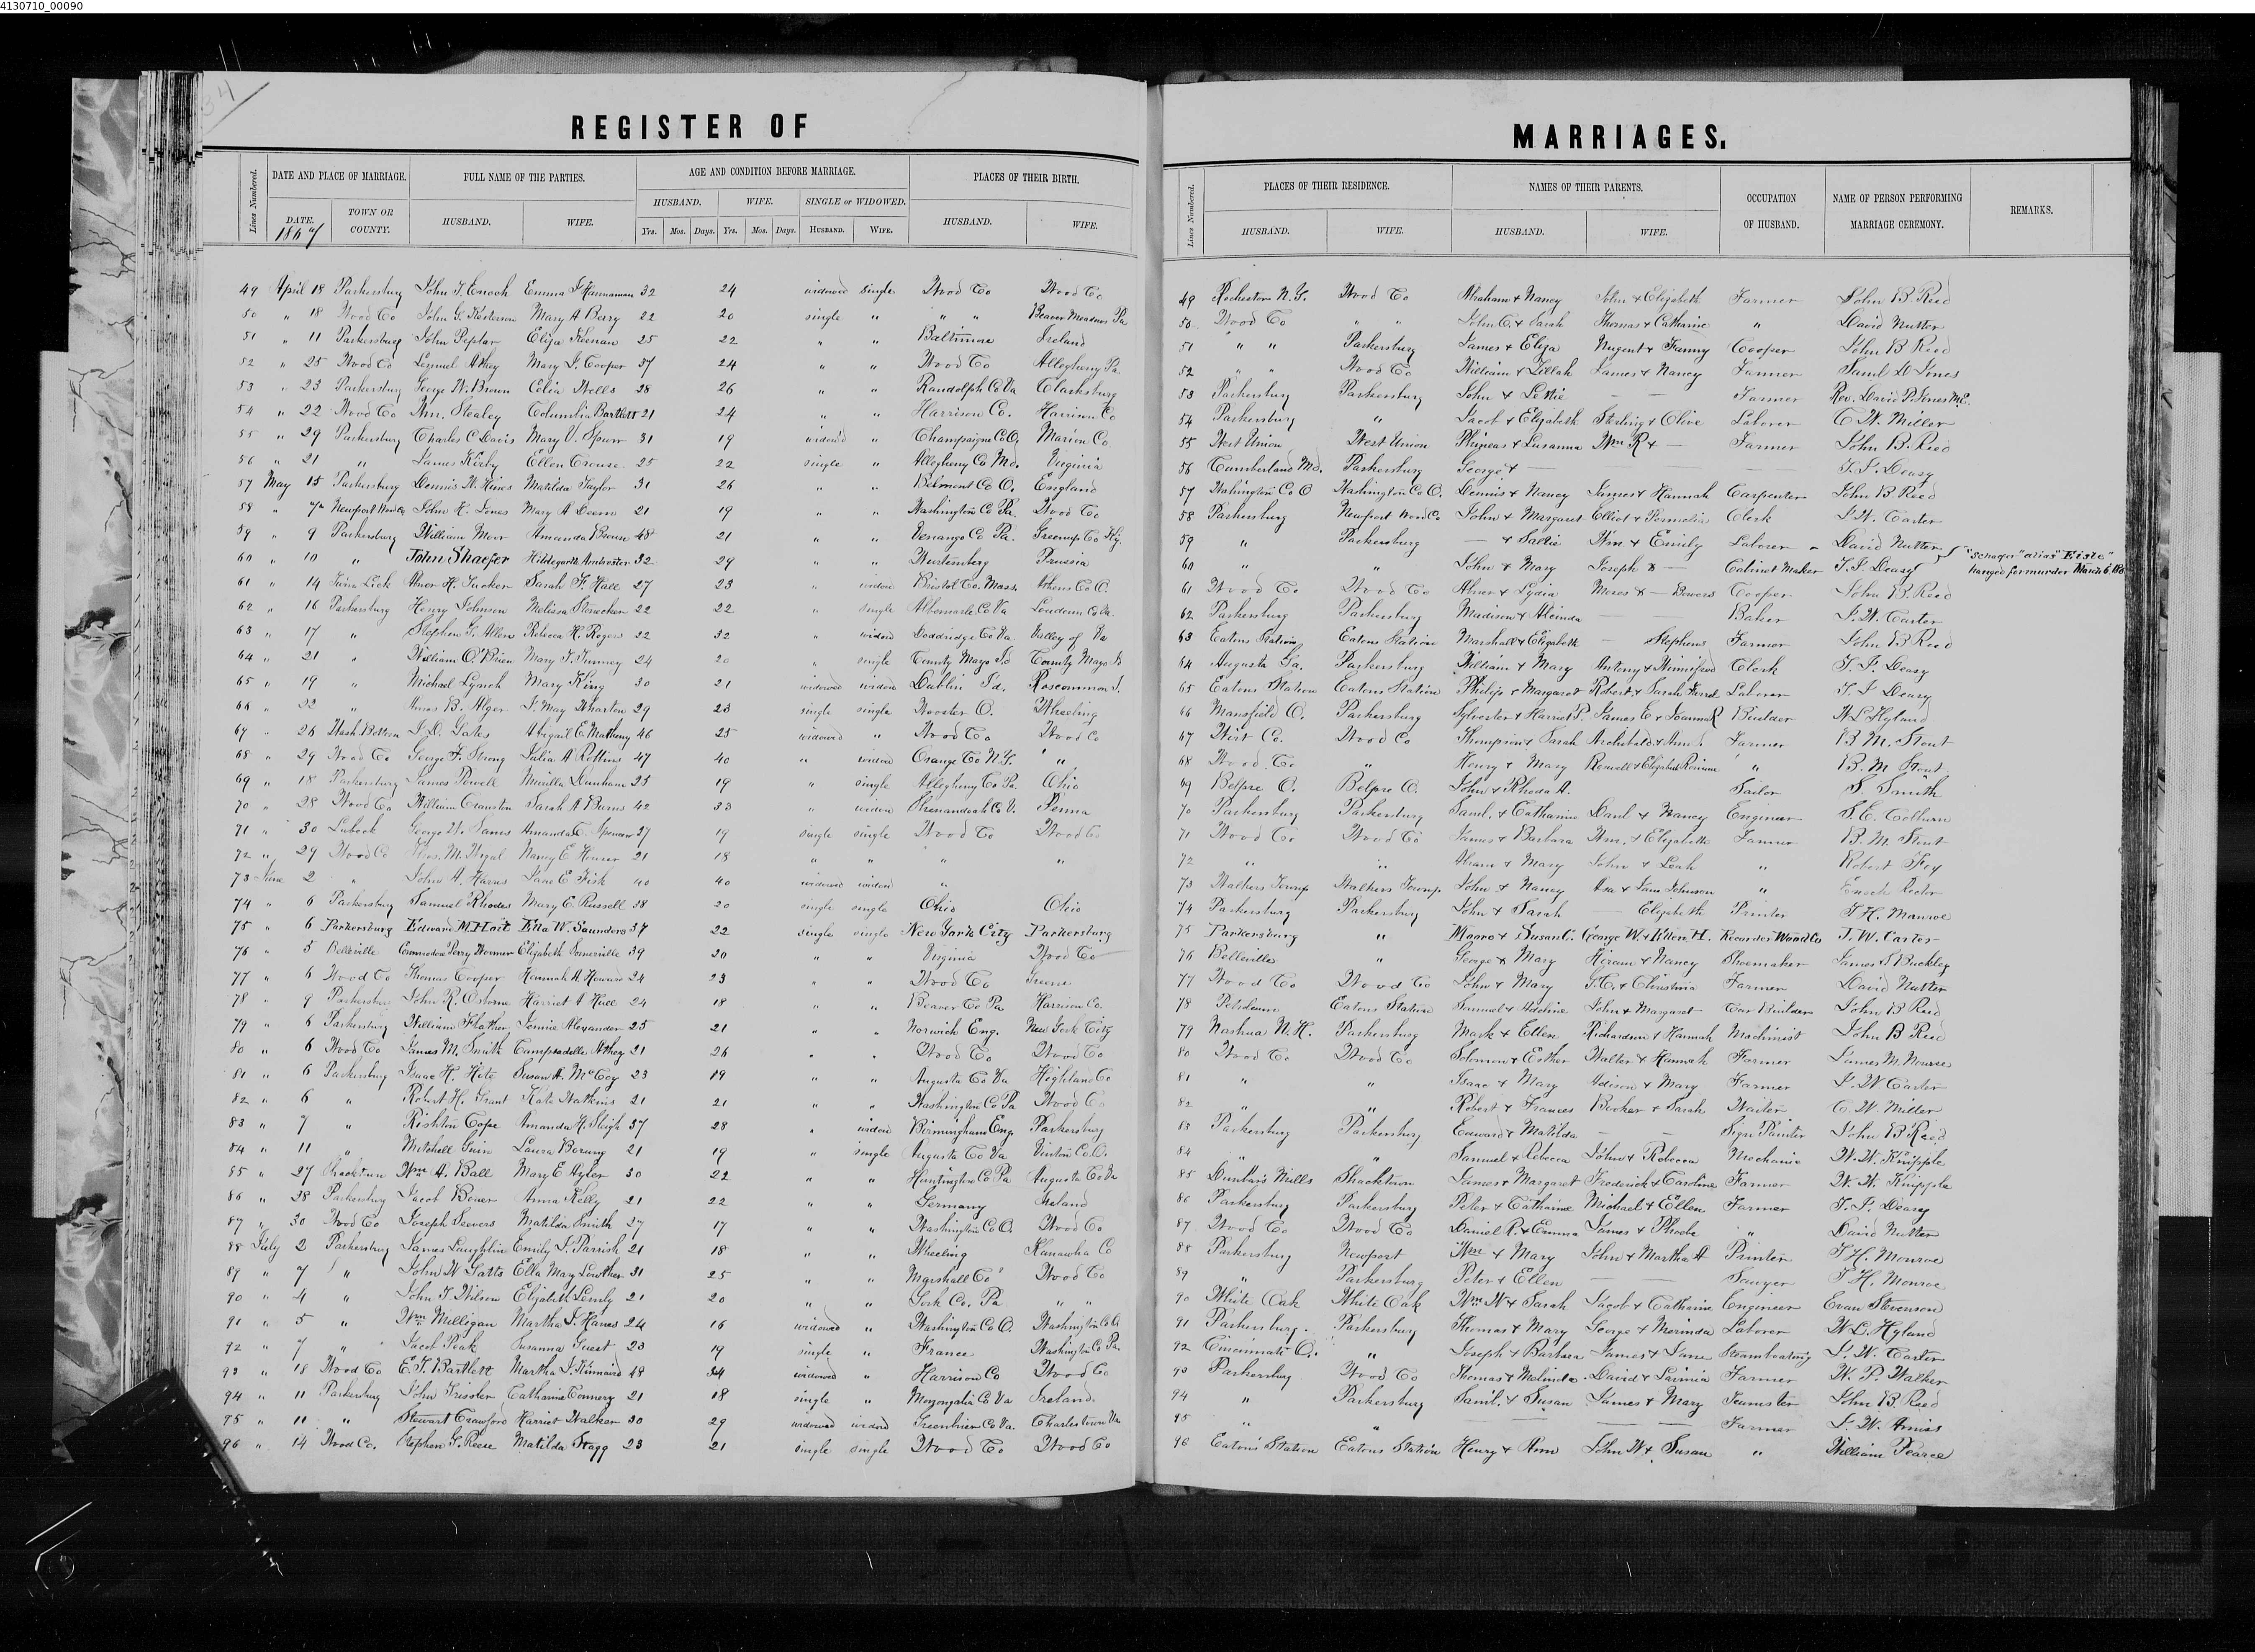 4130710_00090
REGISTER OF
MARRIAGES.
Lines Numbered. DATE AND PLACE OF MARRIAGE. FULL NAME OF THE PARTIES. AGE AND CONDITION BEFORE MARRIAGE. PLACES OF THEIR BIRTH.
HUSBAND. WIFE. SINGLE or WIDOWED.
DATE. 1867 TOWN OR COUNTY. HUSBAND. WIFE. Yrs. Mos. Days. Yrs. Mos. Days. HUSBAND. WIFE. HUSBAND. WIFE.
49 April 18 Parkersburg John T. Enoch Emma J Hannaman 32 24 widowed single Wood Co Wood Co
50 " 18 Wood Co John G. Kesterson Mary A Berry 22 20 single " " " Beaver Meadows Pa
51 " 11 Parkersburg John Peplar Eliza Keenan 25 22 " " Baltimore Ireland
52 " 25 Wood Co Lemuel Athey Mary J. Cooper 37 24 " " Wood Co Allegheny Pa
53 " 23 Parkersburg George W. Brown Celia Wells 28 26 " " Randolph Co Va Clarksburg
54 " 22 Wood Co Wm. Stealey Columbia Bartlett 21 24 " " Harrison Co. Harrison Co
55 " 29 Parkersburg Charles C Davis Mary V. Spurr 31 19 widow'd " Champaigne Co O. Marion Co
56 " 21 " James Kirby Ellen Crouse 25 22 single " Allegheny Co Md. Virginia
57 May 15 Parkersburg Dennis W. Hines Matilda Taylor 31 26 " " Belmont Co O. England
58 " 7 Newport Wood Co John H. Jones Mary A Deem 21 19 " " Washington Co Pa. Wood Co
59 " 9 Parkersburg William Moor Amanda Brown 48 21 " " Venango Co Pa. Greenup Co Ky.
60 " 10 " John Shaefer Hildegarth Ambroster 32 29 " " Wurtemberg Prussia
61 " 14 Abner H. Tucker Sarah F. Hall 27 23 " widow Bristol Co. Mass. Athens Co O.
62 " 16 Parkersburg Henry Johnson Melissa Strecker 22 22 " single Albemarle Co Va Loudoun Co Va.
63 " 17 " Stephen G. Allen Rebecca H. Rogers 22 32 " widow Doddridge Co Va. Valley of Va
64 " 21 " William O'Brien Mary T. Tunney 24 20 " single County Mayo Id County Mayo Id
65 " 19 " Michael Lynch Mary King 30 21 widowed widow Dublin I'd. Roscommon I.
66 " 22 " Amos B. Alger J. May Wharton 29 23 single single Wooster O. Wheeling
67 " 26 Wash. Bottom J.D. Gates Abigail E. Matheny 46 25 widowed " Wood Co Wood Co
68 " 29 Wood Co George F. Strong Julia A Rollins 47 40 " widow Orange Co N.Y. "
69 " 18 Parkersburg James Powell Dunham 23 19 " single Allegheny Co Pa. Ohio
70 " 28 Wood Co William Cranston Sarah A Burns 42 33 " widow Shenandoah Co V. Penna
71 " 30 Lubeck George W. Sams Amanda C. Spencer 27 19 single single Wood Co Wood Co
72 " 29 Wood Co Nancy E. Houser 21 18 " " " "
73 June 2 " John A. Havus Jane E Fisk 40 40 widowed widow "
74 " 6 Parkersburg Samuel Rhodes Mary E. Russell 38 20 single single Ohio Ohio
75 " 6 Parkersburg Edward M. Hoit Etta W. Saunders 37 22 single single New York City Parkersburg
76 " 5 Belleville Commodore Perry Wormer Elizabeth Somerville 39 20 " " Virginia Wood Co
77 " 6 Wood Co Thomas Cooper Hannah A Howard 24 23 " " Wood Co Greene
78 " 9 Parkersburg John R. Osborne Harriet A Hall 24 18 " " Beaver Co Pa Harrison Co.
79 " 6 Parkersburg William Flather Jennie Alexander 25 21 " " Norwich Eng. New York City
80 " 6 Wood Co James M. Smith Campsadelle Athey 21 26 " " Wood Co Wood Co
81 " 6 Parkersburg Isaac H. Hite Susan A. McCoy 23 19 " " Augusta Co Va Highland Co
82 " 6 " Robert H. Grant Kate Watkins 21 21 " " Washington Co Pa Wood Co
83 " 7 " Rishton Cope Amanda H. Sleigh 37 28 " widow Birmingham Eng. Parkersburg
84 " 11 " Mitchell Guin Laura Borung 21 19 " single Augusta Co Va Vinton Co. O.
85 " 27 Shacktown Wm. A. Ball Mary E Hyler 30 22 " " Huntington Co Pa Augusta Co Va
86 " 28 Parkersburg Jacob Bower Anna Kelly 21 22 " " Germany Ireland
87 " 30 Wood Co Joseph Seevers Matilda Smith 27 17 " " Washington Co O. Wood Co
88 July 2 Parkersburg James Laughlin Emily J. Parrish 21 18 " " Wheeling Kanawha Co
89 " 7 " John W Gatts Ella Mary Lowther 31 25 " " Marshall Co Wood Co
90 " 4 " John T Wilson Elizabeth Lemly 21 20 " " York Co. Pa " "
91 " 5 " Wm Milligan Martha J. Hanes 24 16 widowed " Washington Co O. Washington Co O
92 " 7 " Jacob Peak Susanna Guest 23 19 single " France Washington Co Pa.
93 " 18 Wood Co E. T. Bartlett Martha J. Kinnaird 48 34 widowed " Harrison Co Wood Co
94 " 11 Parkersburg John Trissler Catharine Connery 21 18 single " Monongalia Co Va Ireland
95 " 11 " Stewart Crawford Harriet Walker 30 29 widowed widow Greenbrier Co Va. Charlestown Va
96 " 14 Wood Co. Stephen G. Reese Matilda Stagg 23 21 single single Wood Co Wood Co
Lines Numbered. PLACES OF THEIR RESIDENCE. NAMES OF THEIR PARENTS. OCCUPATION OF HUSBAND. NAME OF PERSON PERFORMING MARRIAGE CEREMONY. REMARKS.
HUSBAND. WIFE. HUSBAND. WIFE.
49 Rochester N.Y. Wood Co Abraham & Nancy John & Elizabeth Farmer John B Reed
50 Wood Co " " John C. & Sarah Thomas & Catharine " David Nutter
51 " " Parkersburg James & Eliza Nugent & Fanny Cooper John B Reed
52 " " Wood Co William & Zillah James & Nancy Farmer Saml D Jones
53 Parkersburg Parkersburg John & Lettie — — Farmer Rev. David P. Jones M.E.
54 Parkersburg " Jacob & Elizabeth Sterling & Olive Laborer C. W. Miller
55 West Union West Union Phineas & Susanna Wm. R & — Farmer John B. Reed
56 Cumberland Md. Parkersburg George & — — T. F. Deasy
57 Wahington Co O Washington Co O. Dennis & Nancy James & Hannah Carpenter John B Reed
58 Parkersburg Newport Wood Co John & Margaret Elliot & Permelia Clerk J. W. Carter
59 " Parkersburg — & Sallie Wm & Emily Laborer David Nutter
60 " " John & Mary Joseph & — Cabinet Maker T. F. Deasy "Schafer" alias "Eisle" hanged for murder March 6, 186
61 Wood Co Wood Co Abner & Lydia Moses & — Bowers Cooper John B. Reed
62 Parkersburg Parkersburg Madison & Alcinda — Baker J. W. Carter
63 Eatons Station Eatons Station Marshall & Elizabeth — Stephens Farmer John B Reed
64 Augusta Ga. Parkersburg William & Mary Antony & Winnifred Clerk T. F. Deasy
65 Eatons Station Eatons Station Philip & Margaret Robert & Sarah Laborer T. F Deasy
66 Mansfield O. Parkersburg Sylvester & Harriet P. James E & Joanna R Builder W L Hyland
67 Wirt Co. Wood Co Thompson & Sarah Archibald & Ann Farmer B. M. Stout
68 Wood Co " Henry & Mary Roswell & Elizabeth " B. M Stout
69 Belpre O. Belpre O. John & Rhoda A. Sailor S. Smith
70 Parkersburg Parkersburg Saml. & Catharine Danl & Nancy Engineer S. E. Colburn
71 Wood Co Wood Co James & Barbara Wm. & Elizabeth Farmer B. M. Stout
72 " " Abram & Mary John & Leah " Robert Fey
73 Walkers Townp Walkers Townp John & Nancy Asa & Jane Johnson " Enoch Rector
74 Parkersburg Parkersburg John & Sarah — Elizabeth Printer T. H. Monroe
75 Parkersburg " Moore & Susan C. George W. & Ellen H. Recorder Wood Co J. W. Carter
76 Belleville " George & Mary Hiram & Nancy Shoemaker James S Buckley
77 Wood Co Wood Co John & Mary G. C. & Christina Farmer David Nutter
78 Petroleum Eatons Station Samuel & Adeline John & Margaret Car Builder John B Reed
79 Nashua N. H. Parkersburg Mark & Ellen Richardson & Hannah Machinist John B Reed
80 Wood Co Wood Co Solomon & Esther Walter & Hannah Farmer James M. Nourse
81 " " Isaac & Mary Adison & Mary Farmer J. W Carter
82 " " Robert & Frances Booker & Sarah Waiter C. W Miller
83 Parkersburg Parkersburg Edward & Matilda — — Sign Painter John B Reed
84 " " Samuel & Rebecca John & Rebecca Mechanic W. W. Knipple
85 Dunbars Mills Shacktown James & Margaret Frederick & Caroline Farmer W. W. Knipple
86 Parkersburg Parkersburg Peter & Catharine Michael & Ellen Farmer T. F. Deasy
87 Wood Co Wood Co Daniel R. & Emma James & Phoebe " David Nutter
88 Parkersburg Newport Wm & Mary John & Martha A Printer T H. Monroe
89 " Parkersburg Peter & Ellen — — Sawyer T H. Monroe
90 White Oak White Oak Wm W & Sarah Jacob & Catharine Engineer Evan Stevenson
91 Parkersburg. Parkersburg Thomas & Mary George & Merinda Laborer W. L. Hyland
92 Cincinnati O. " Joseph & Barbara James & Jane Steamboating J. W. Carter
93 Parkersburg Wood Co Thomas & Malinda David & Lavinia Farmer W. P. Walker
94 " Parkersburg Saml. & Susan James & Mary Teamster John B. Reed
95 " " — — Farmer J. W. Amiss
96 Eaton's Station Eatons Station Henry & Ann John W & Susan " William Pearce